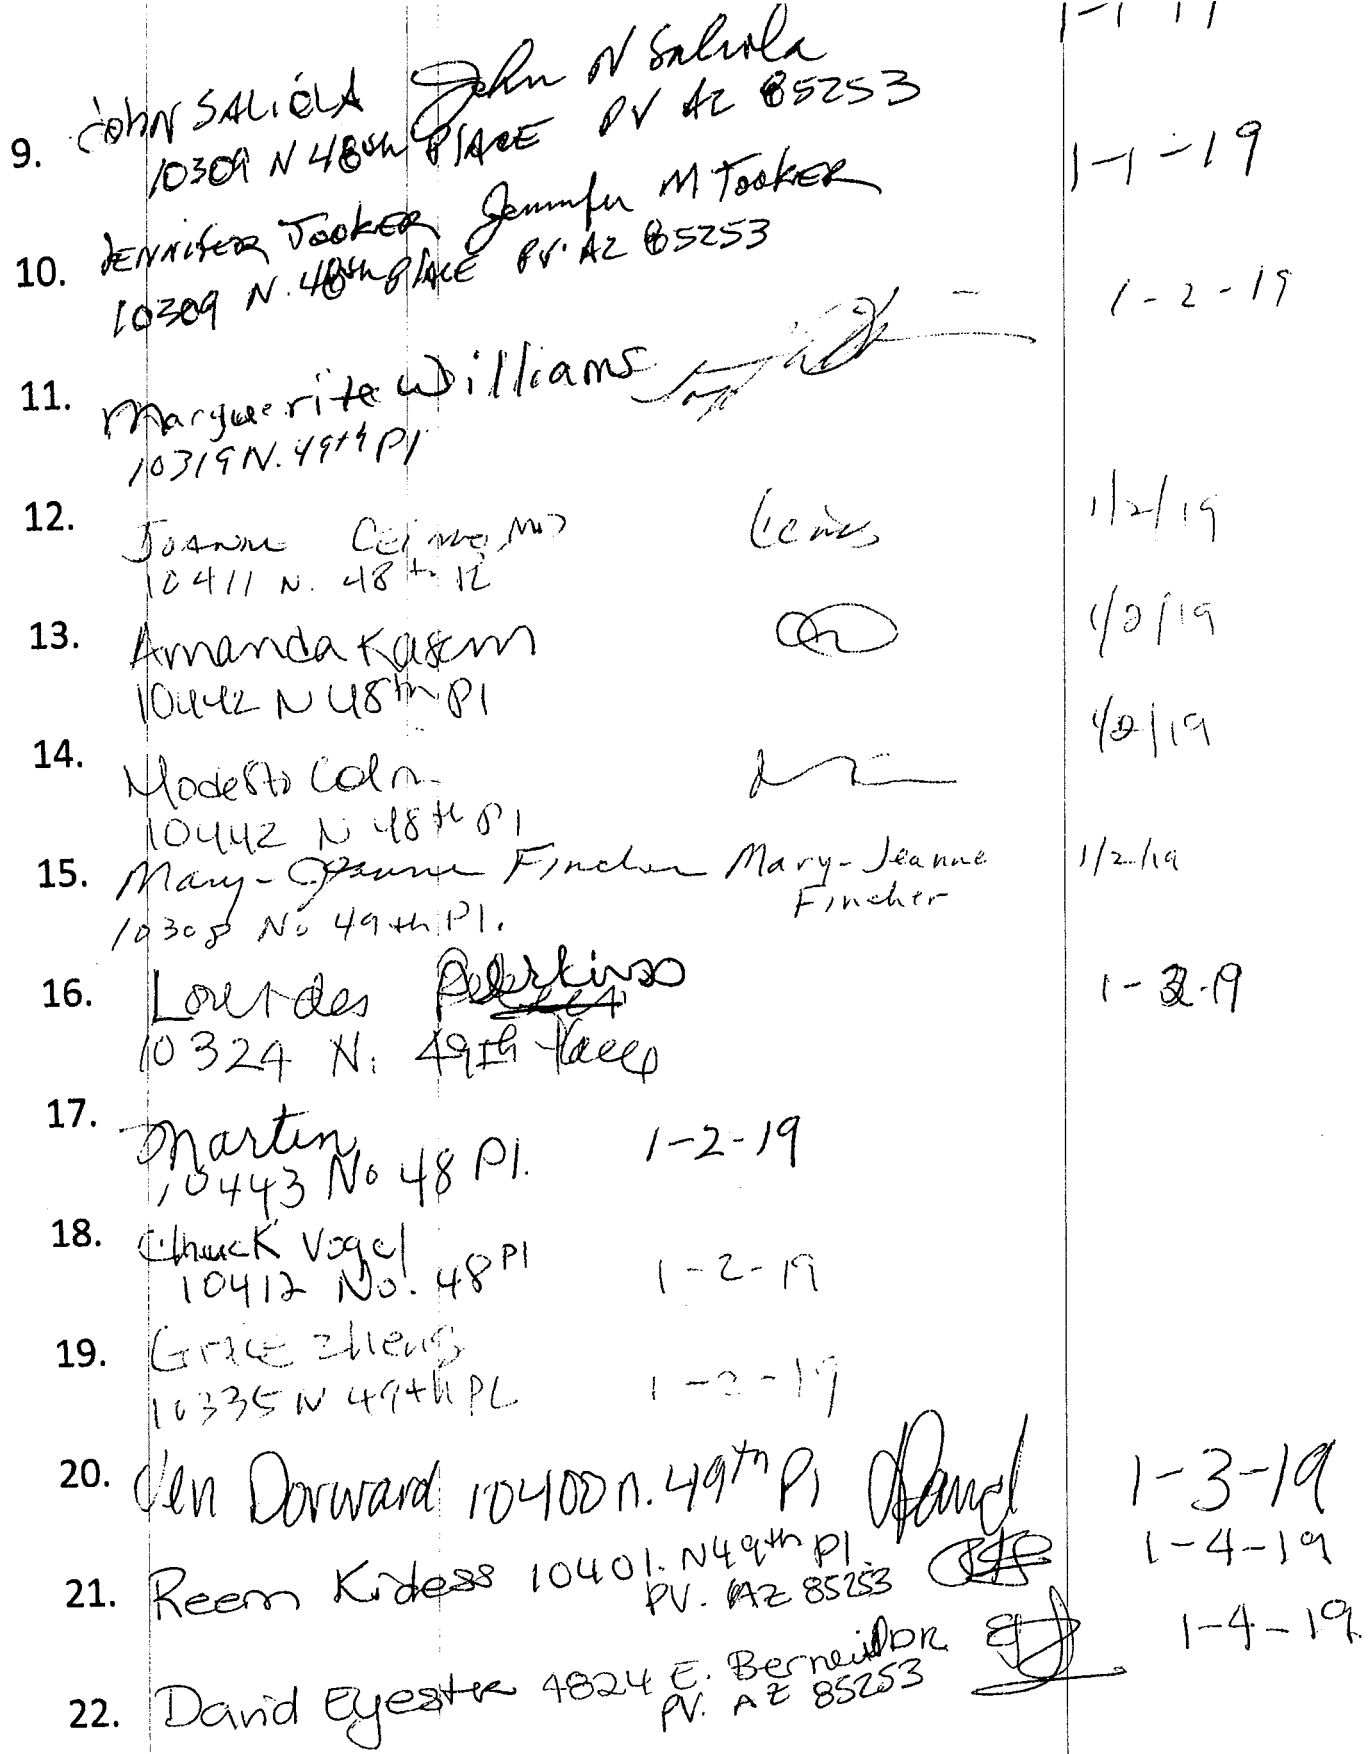 9. JOHN SALIOLA John N Saliola
10309 N 48th PLACE PV AZ 85253
1-1-19
10. JENNIFER TOOKER Jennifer M TOOKER
10309 N. 48th PLACE PV. AZ 85253
1-2-19
11. Marguerite Williams
10319 N. 49th Pl
12. JOANNE MD 1/2/19
10411 N. 48th Pl
13. Amanda Kasem 1/2/19
10442 N 48th Pl
14. Modesto Colon 1/2/19
10442 N 48th Pl
15. Mary-Jeanne Fincher Mary-Jeanne 1/2/19
Fincher
10308 No 49th Pl.
16. Lourdes 1-2-19
10324 N. 49th Place
17. Martin 1-2-19
10443 No 48 Pl.
18. Chuck Vogel
10412 No. 48 Pl 1-2-19
19. Grace Zheng
10335 N 49th PL 1-2-19
20. Jen Dorward 10400 n. 49th Pl 1-3-19
21. Reem Kidess 10401. N 49th Pl. 1-4-19
PV. AZ 85253
22. David Eyester 4824 E. Berneil DR 1-4-19
PV. AZ 85253